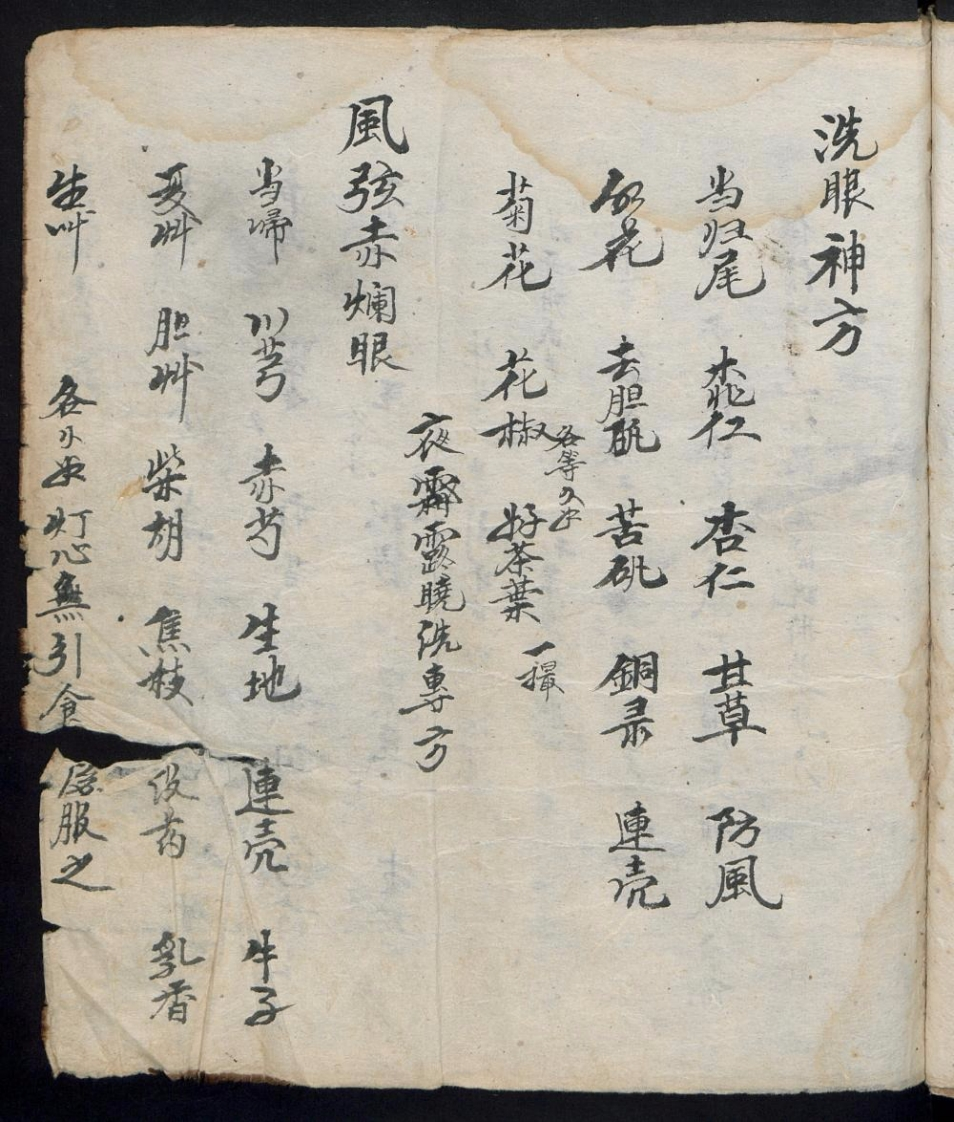 洗眼神方
当归尾 桃仁 杏仁 甘草 防風
红花 去胆矾 苦矾 銅录 連壳
菊花 花椒 各等分 好茶葉 一撮
夜霧露曉洗專方
風弦赤爛眼
当帰 川芎 赤芍 生地 連壳 牛子
夏艸 胆艸 柴胡 焦枝 没药 乳香
生艸 各 灯心 引 食 服之